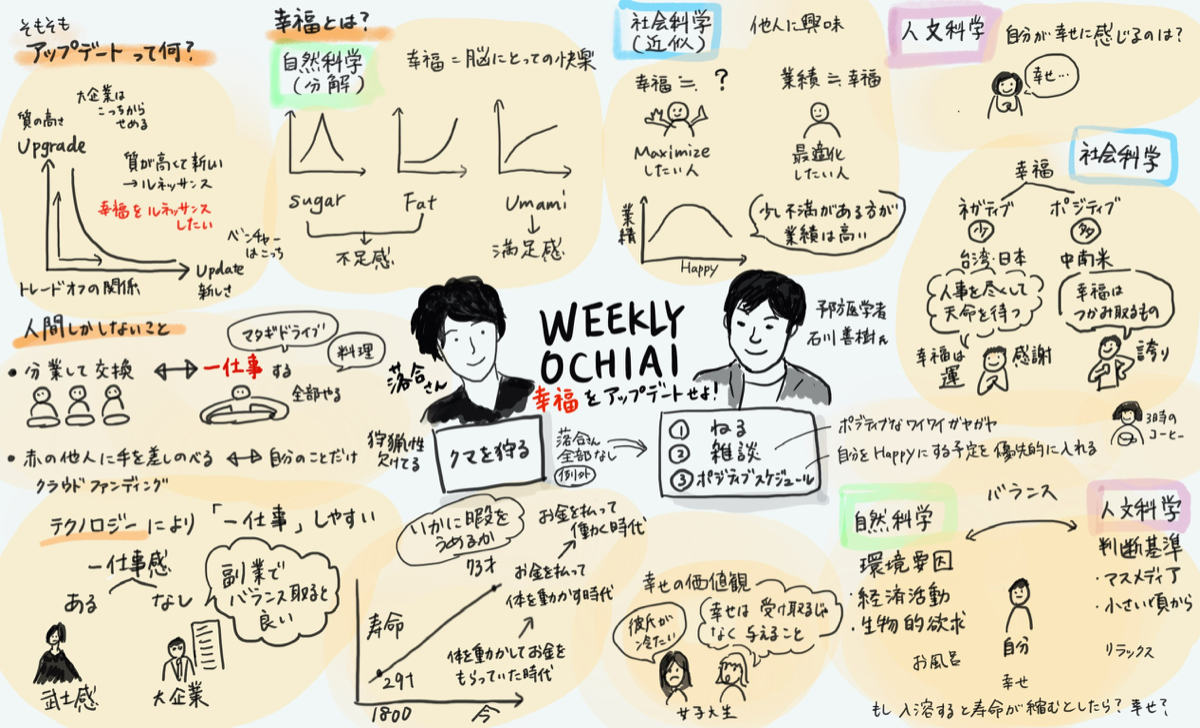 そもそも
アップデートって何?
大企業は
こっちから
せめる
質の高さ
Upgrade
質が高くて新しい
→ルネッサンス
幸福をルネッサンス
したい
ベンチャー
はこっち
Update
新しさ
トレードオフの関係
幸福とは?
自然科学
(分解)
幸福=脳にとっての快楽
sugar
Fat
Umami
不足感
満足感
社会科学
(近似)
他人に興味
幸福≒ ?
業績≒幸福
Maximize
したい人
最適化
したい人
業績
Happy
少し不満がある方が
業績は高い
人文科学
自分が幸せに感じるのは?
幸せ…
社会科学
幸福
ネガティブ
ポジティブ
少
多
台湾・日本
中南米
人事を尽くして
天命を待つ
幸福は
つかみ取るもの
幸福は
運
感謝
誇り
人間しかしないこと
マタギドライブ
料理
・分業して交換
⟷
一仕事する
全部やる
・赤の他人に手を差しのべる
⟷
自分のことだけ
クラウドファンディング
落合さん
WEEKLY
OCHIAI
幸福をアップデートせよ!
予防医学者
石川善樹さん
狩猟性
欠けてる
クマを狩る
落合さん
全部なし
例外
① ねる
② 雑談
③ ポジティブスケジュール
ポジティブなワイワイガヤガヤ
自分をHappyにする予定を優先的に入れる
3時の
コーヒー
テクノロジーにより「一仕事」しやすい
一仕事感
ある
なし
武士感
大企業
副業で
バランス取ると
良い
いかに暇を
うめるか
お金を払って
働く時代
73才
お金を払って
体を動かす時代
寿命
体を動かしてお金を
もらっていた時代
29才
1800
今
幸せの価値観
彼氏が
冷たい
幸せは受け取るじゃ
なく与えること
女子大生
自然科学
バランス
人文科学
環境要因
・経済活動
・生物的欲求
判断基準
・マスメディア
・小さい頃から
自分
お風呂
幸せ
リラックス
もし入浴すると寿命が縮むとしたら?幸せ?